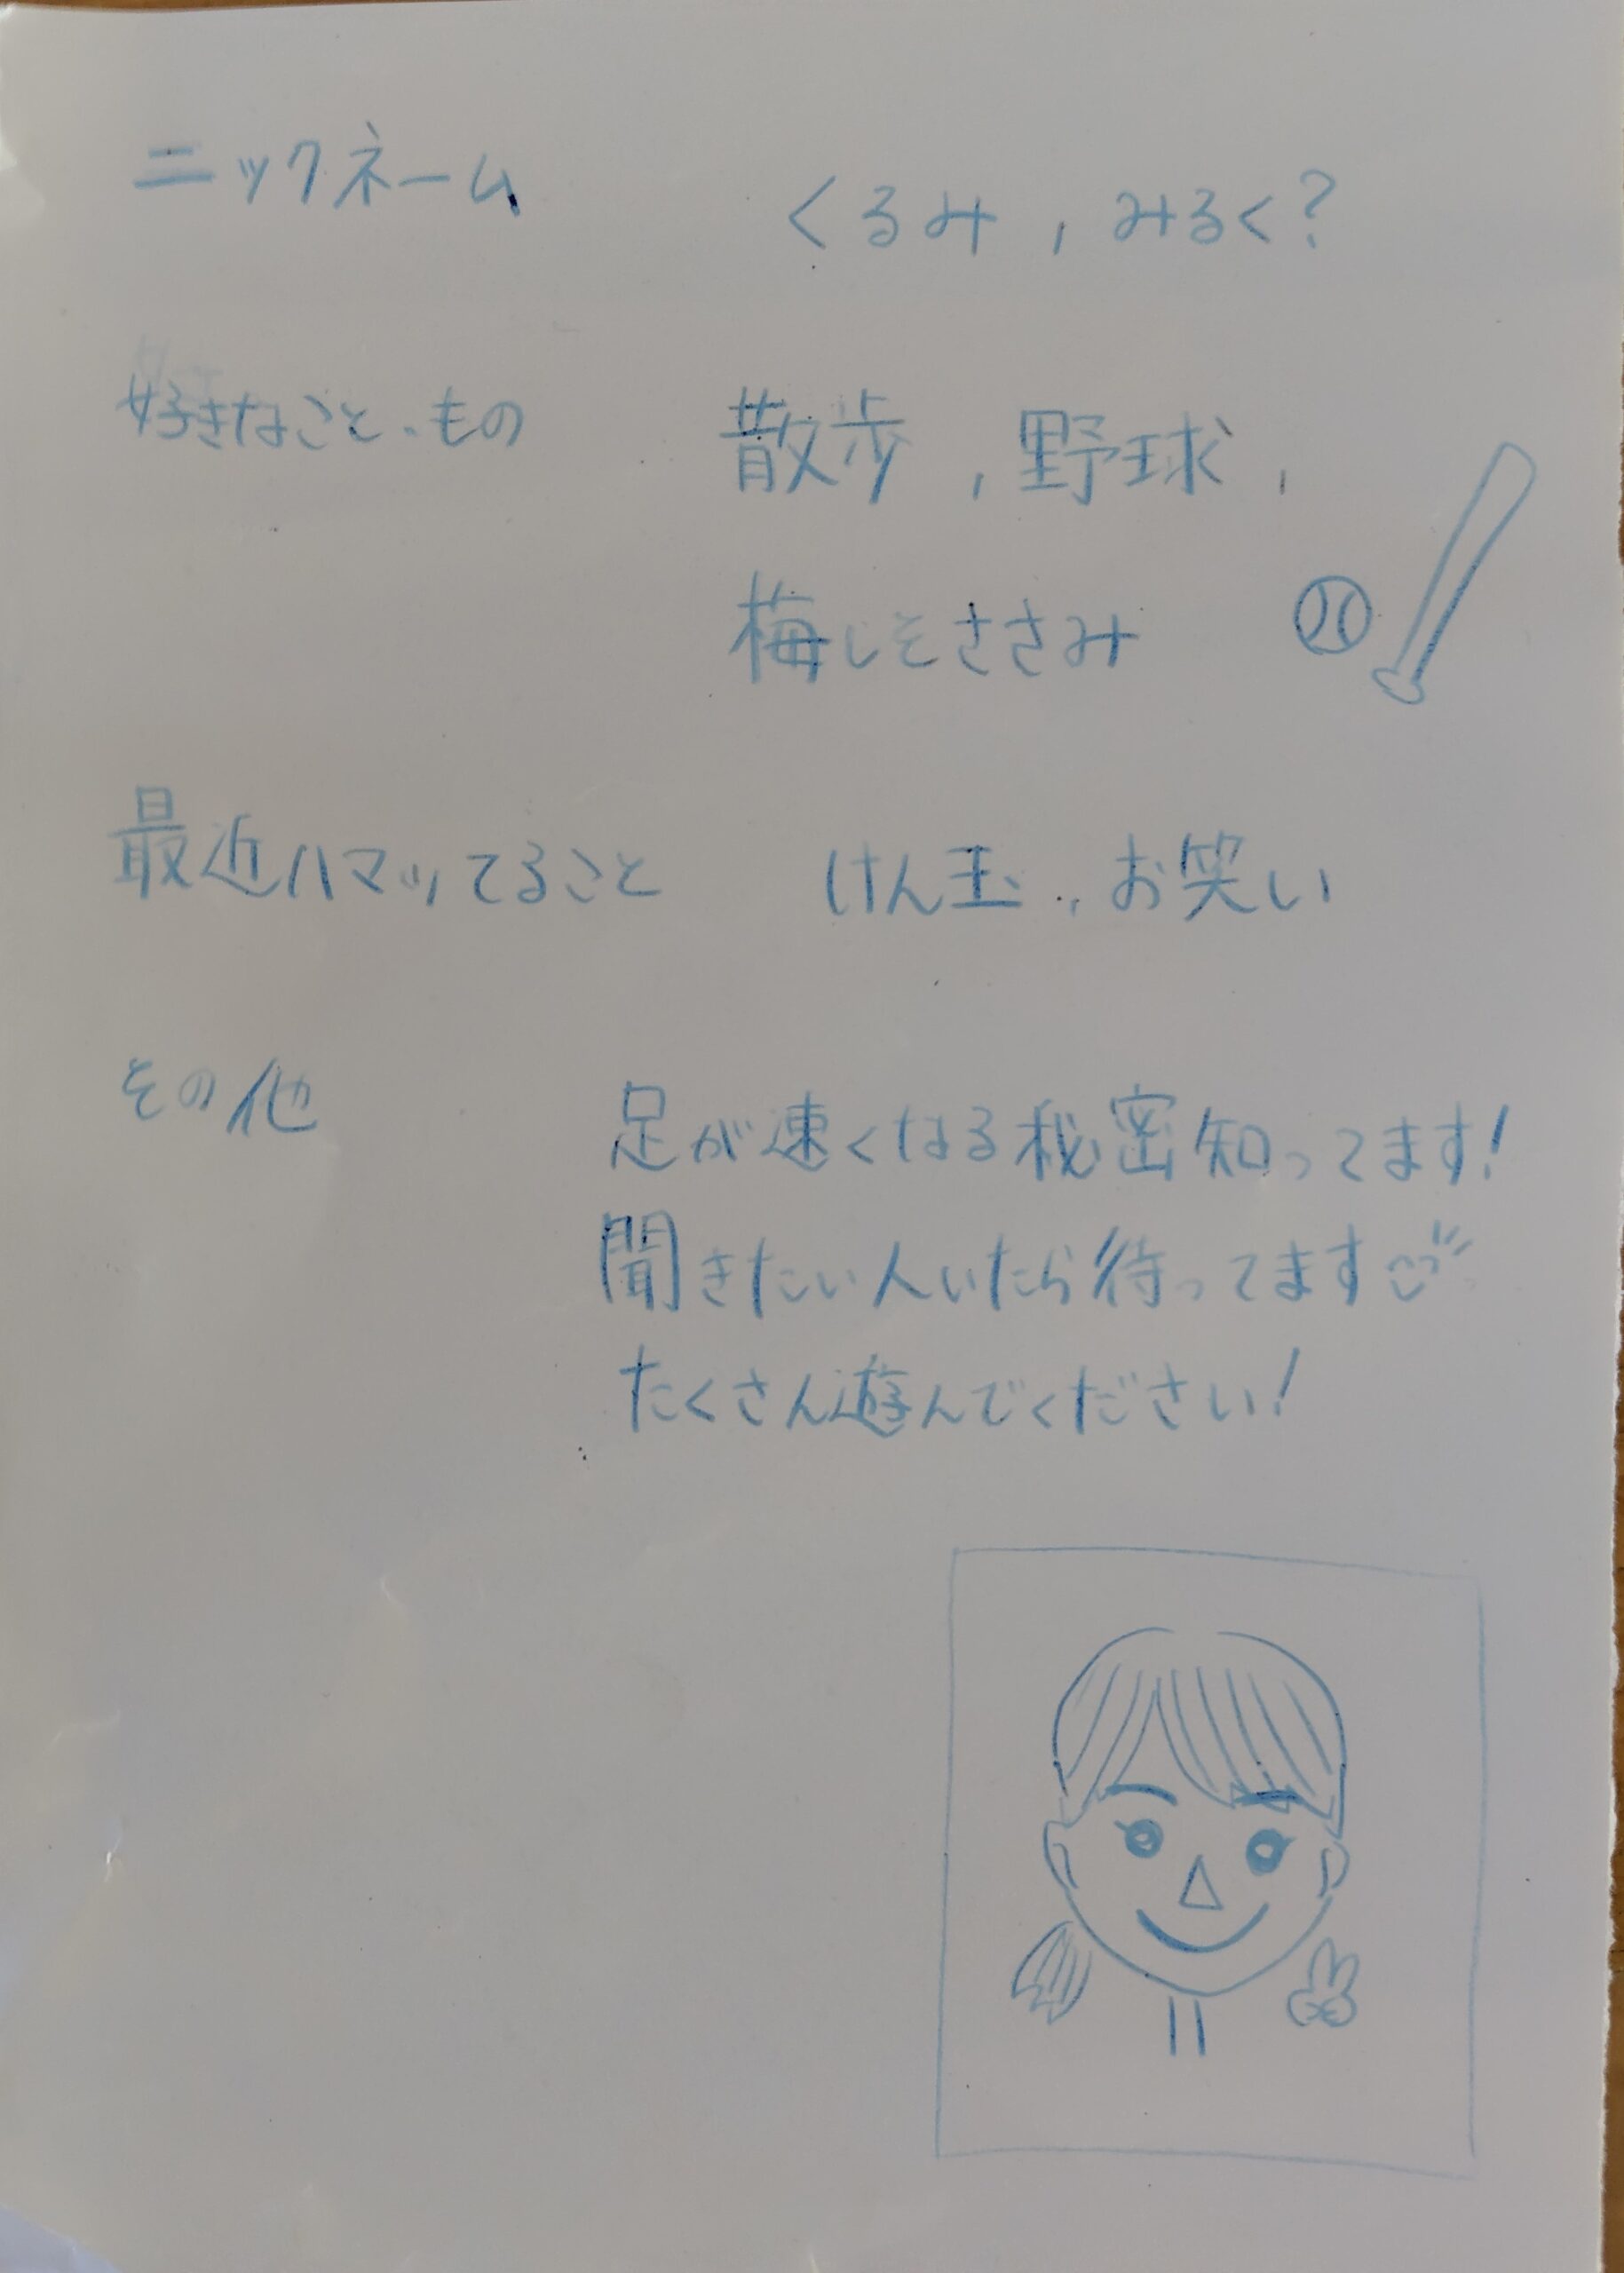 ニックネーム くるみ, みるく?
好きなこと・もの 散歩, 野球,
梅しそささみ
最近ハマッてること けん玉, お笑い
その他 足が速くなる秘密知ってます!
聞きたい人いたら待ってます
たくさん遊んでください!